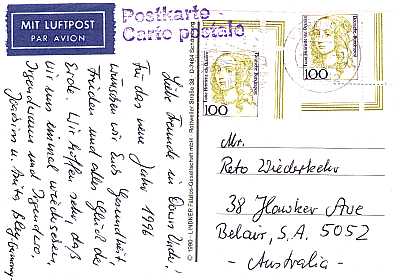 MIT LUFTPOST
PAR AVION
Postkarte
Carte postale
Liebe Freunde in Down Under!
Für das neue Jahr 1996
wünschen wir Euch Gesundheit,
Frieden und alles Glück der
Erde. Wir hoffen sehr, daß
wir uns einmal wiedersehen,
irgendwann und irgendwo,
Joachim u. Anita
© 1990 - LINNKER Filatos-Gesellschaft mbH · Rottweiler Straße 38 ·
Deutsche Bundespost
Luise Henriette von Oranien
100
Deutsche Bundespost
Luise Henriette von Oranien
100
Mr.
Reto Wiederkehr
38 Hawker Ave
Belair, S.A. 5052
- Australia -